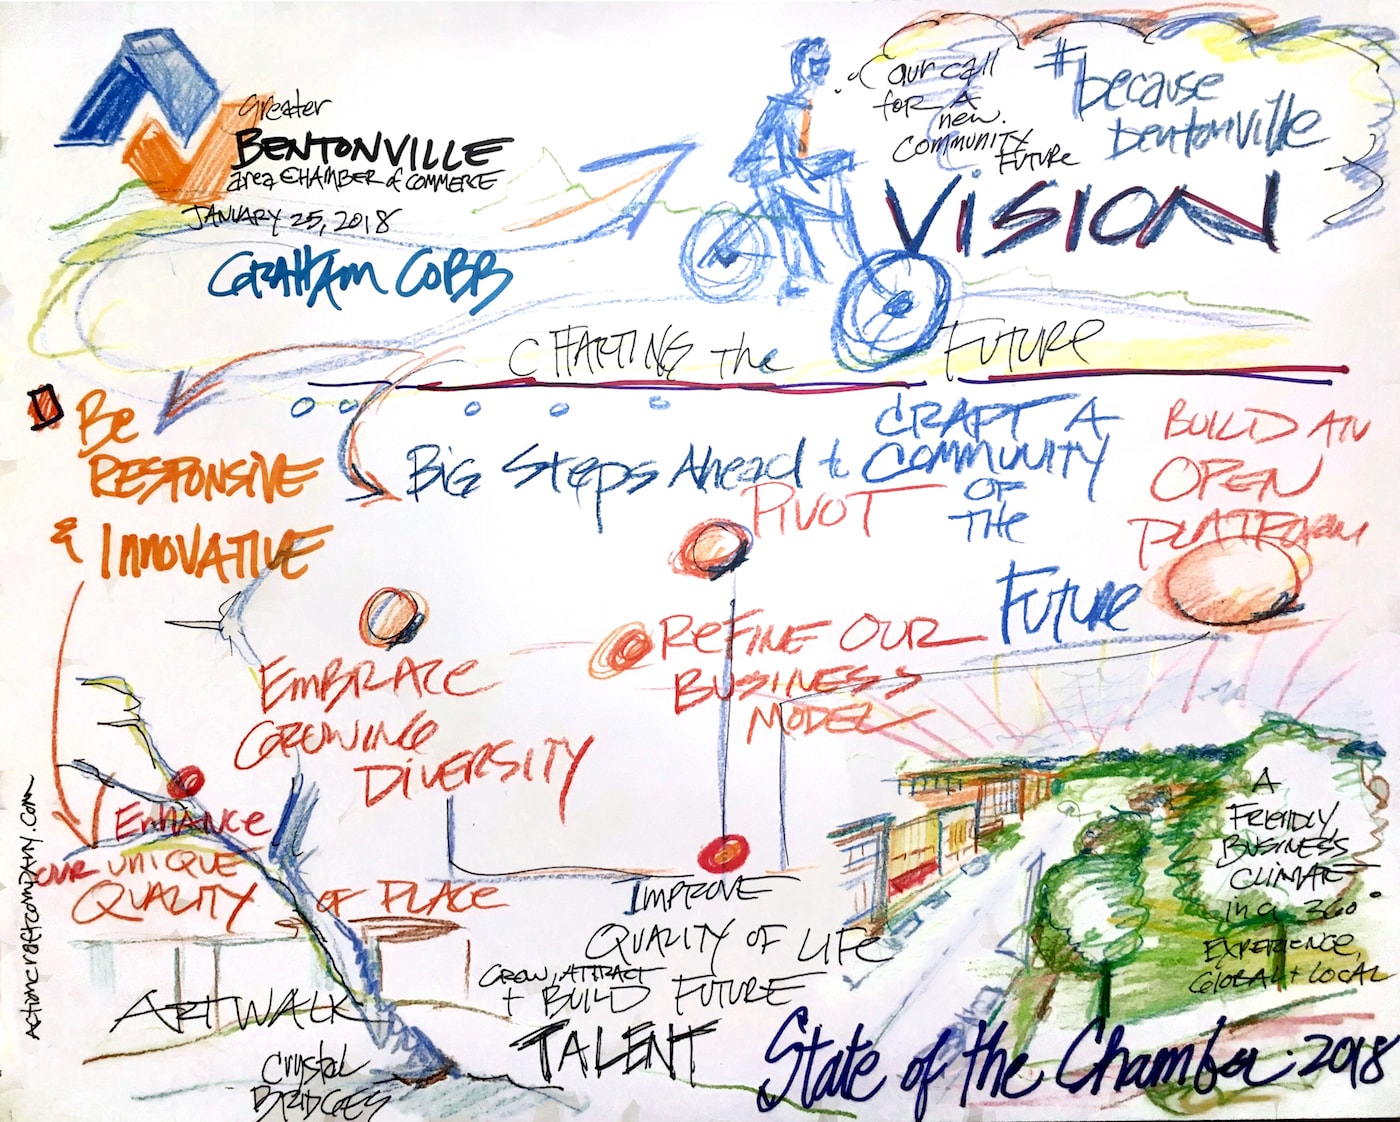 Greater
BENTONVILLE
area CHAMBER of COMMERCE
JANUARY 25, 2018
GRAHAM COBB
our call
for A
new
COMMUNITY
FUTURE
#because
bentonville
VISION
CHARTING the FUTURE
Be
RESPONSIVE
& INNOVATIVE
BIG Steps Ahead to
CRAFT A
COMMUNITY
OF
THE
FUTURE
PIVOT
BUILD AN
OPEN
PLATFORM
REFINE OUR
BUSINESS
MODEL
EMBRACE
GROWING
DIVERSITY
ENHANCE
OUR UNIQUE
QUALITY OF PLACE
IMPROVE
QUALITY OF LIFE
GROW, ATTRACT
+ BUILD FUTURE
TALENT
A
FRIENDLY
BUSINESS
CLIMATE
in a 360°
EXPERIENCE,
GLOBAL + LOCAL
ART WALK
Crystal
BRIDGES
State of the Chamber · 2018
Actioncraftcompany.com